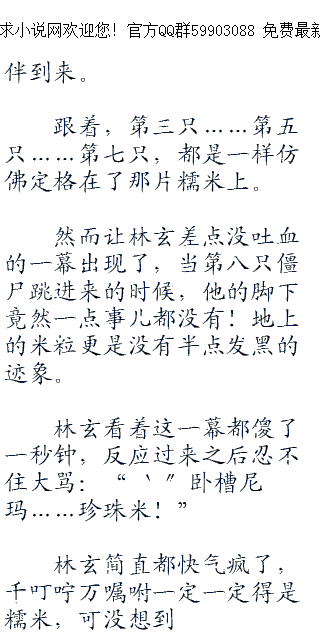 求小说网欢迎您！官方QQ群59903088 免费最新
伴到来。
跟着，第三只……第五
只……第七只，都是一样仿
佛定格在了那片糯米上。
然而让林玄差点没吐血
的一幕出现了，当第八只僵
尸跳进来的时候，他的脚下
竟然一点事儿都没有！地上
的米粒更是没有半点发黑的
迹象。
林玄看着这一幕都傻了
一秒钟，反应过来之后忍不
住大骂：“ ‵〞卧槽尼
玛……珍珠米！”
林玄简直都快气疯了，
千叮咛万嘱咐一定一定得是
糯米，可没想到